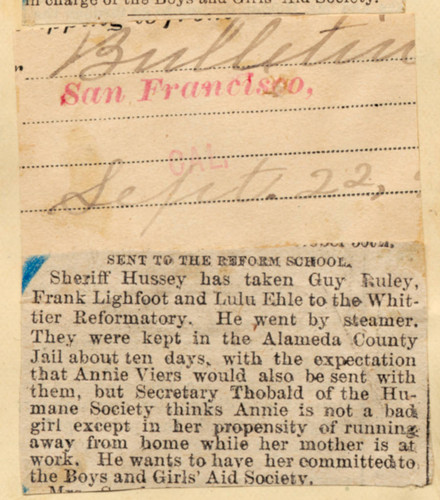 in charge of the Boys and Girls' Aid Society.
Bulletin
San Francisco,
CAL.
Sept. 22,
SENT TO THE REFORM SCHOOL.
Sheriff Hussey has taken Guy Ruley,
Frank Lighfoot and Lulu Ehle to the Whit-
tier Reformatory. He went by steamer.
They were kept in the Alameda County
Jail about ten days, with the expectation
that Annie Viers would also be sent with
them, but Secretary Thobald of the Hu-
mane Society thinks Annie is not a bad
girl except in her propensity of running
away from home while her mother is at
work. He wants to have her committed to
the Boys and Girls' Aid Society.
Mrs.